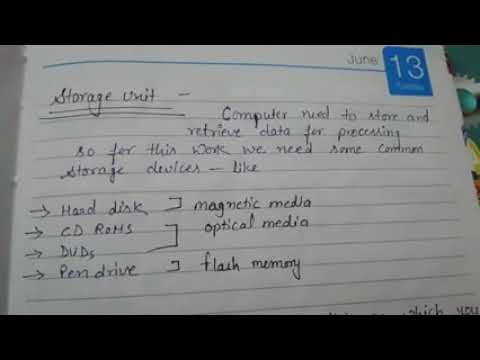 June 13
Storage unit -
Computer need to store and
retrieve data for processing
so for this work we need some common
storage devices - like
→ Hard disk ] magnetic media
→ CD ROMs ] optical media
→ DVDs
→ Pen drive ] flash memory
which you